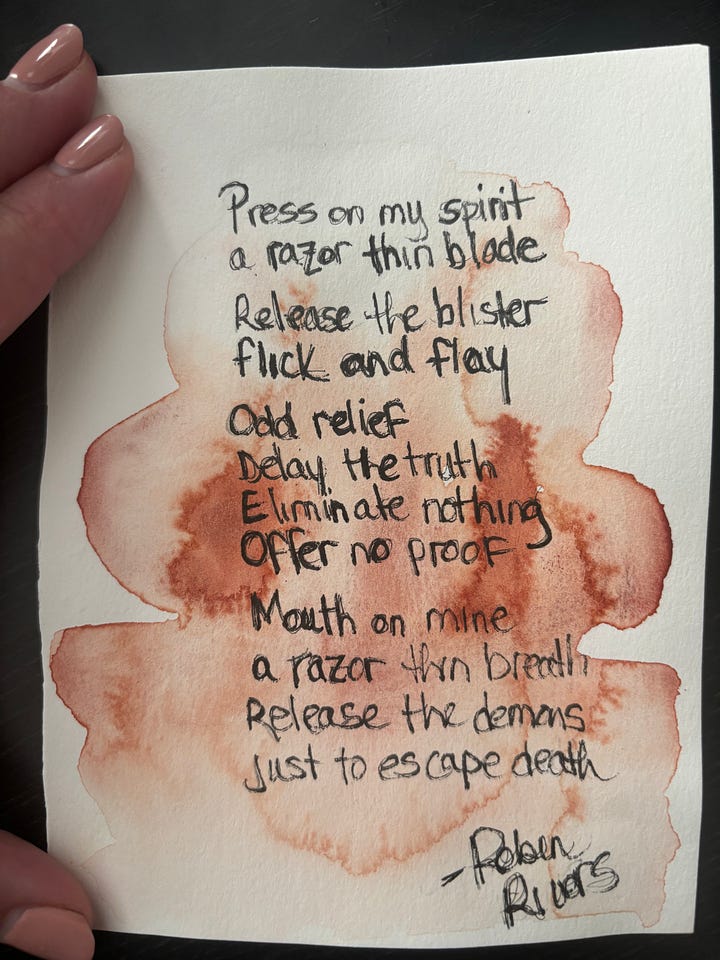 Press on my spirit
a razor thin blade
Release the blister
flick and flay
Odd relief
Delay the truth
Eliminate nothing
Offer no proof
Mouth on mine
a razor thin breath
Release the demons
just to escape death
- Roben
Rivers